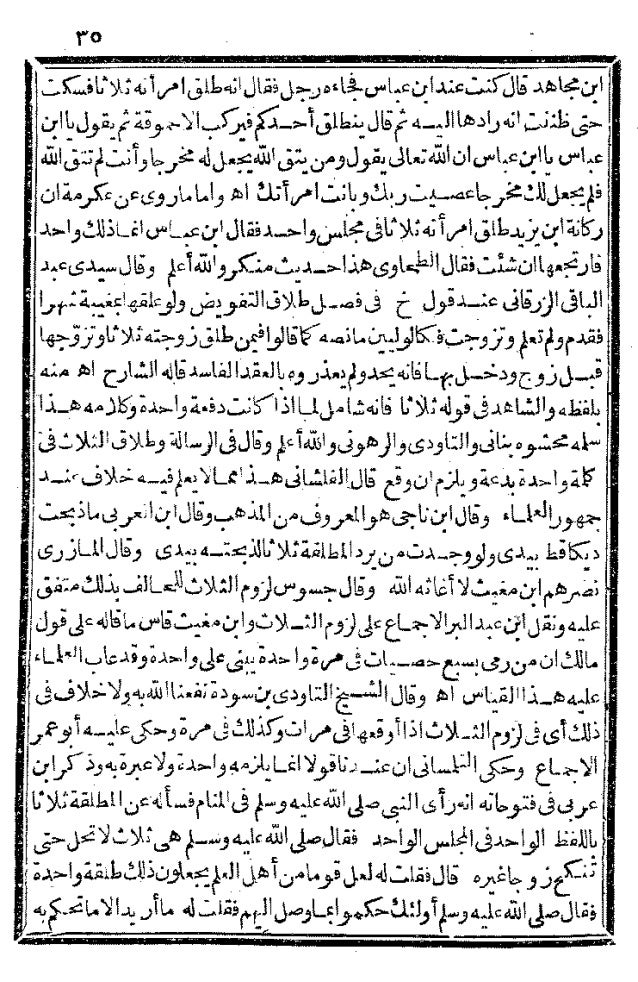 ٣٥
ابن مجاهد قال كنت عند ابن عباس فجاءه رجل فقال انه طلق امرأته ثلاثا فسكت
حتى ظننت انه رادها اليه ثم قال ينطلق أحدكم فيركب الاحموقة ثم يقول يا ابن
عباس يا ابن عباس ان الله تعالى يقول ومن يتق الله يجعل له مخرجا وأنت لم تتق الله
فلم يجعل لك مخرجا عصيت ربك وبانت امرأتك اه واما ماروى عن عكرمة ان
ركانة ابن يزيد طلق امرأته ثلاثا فى مجلس واحد فقال ابن عباس انما ذلك واحد
فارتجعها ان شئت فقال الطحاوى هذا حديث منكر والله أعلم وقال سيدى عبد
الباقى الزرقانى عند قول خ فى فصل طلاق التفويض ولو علقها بمغيبة شهرا
فقدم ولم تعلم وتزوجت فكالوليين مانصه كما قالوا فيمن طلق زوجته ثلاثا وتزوّجها
قبل زوج ودخل بها فانه يحد ولم يعذروه بالعقد الفاسد قاله الشارح اه منه
بلفظه والشاهد فى قوله ثلاثا فانه شامل لما اذا كانت دفعة واحدة وكلامه هذا
سلمه محشوه بنانى والتاودى والرهونى والله أعلم وقال فى الرسالة وطلاق الثلاث فى
كلمة واحدة بدعة ويلزم ان وقع قال القلشانى هذا مما لا يعلم فيه خلاف عند
جمهور العلماء وقال ابن ناجى هو المعروف من المذهب وقال ابن العربى ماذبحت
ديكا قط بيدى ولو وجدت من يرد المطلقة ثلاثا لذبحته بيدى وقال المازرى
نصرهم ابن مغيث لا أغاثه الله وقال جسوس لزوم الثلاث للحالف بذلك متفق
عليه ونقل ابن عبد البر الاجماع على لزوم الثلاث وابن مغيث قاس ماقاله على قول
مالك ان من رمى بسبع حصيات فى مرة واحدة يبنى على واحدة وقد عاب العلماء
عليه هذا القياس اه وقال الشيخ التاودى بن سودة نفعنا الله به ولا خلاف فى
ذلك أى فى لزوم الثلاث اذا أوقعها فى مرات وكذلك فى مرة وحكى عليه أبو عمر
الاجماع وحكى التلمسانى ان عندنا قولا انما يلزمه واحدة ولا عبرة به وذكر ابن
عربى فى فتوحاته انه رأى النبى صلى الله عليه وسلم فى المنام فسأله عن المطلقة ثلاثا
باللفظ الواحد فى المجلس الواحد فقال صلى الله عليه وسلم هى ثلاث لا تحل حتى
تنكح زوجا غيره قال فقلت له لعل قوما من أهل العلم يجعلون ذلك طلقة واحدة
فقال صلى الله عليه وسلم أولئك حكموا بما وصل اليهم فقلت له ما أريد الا ما تحكم به